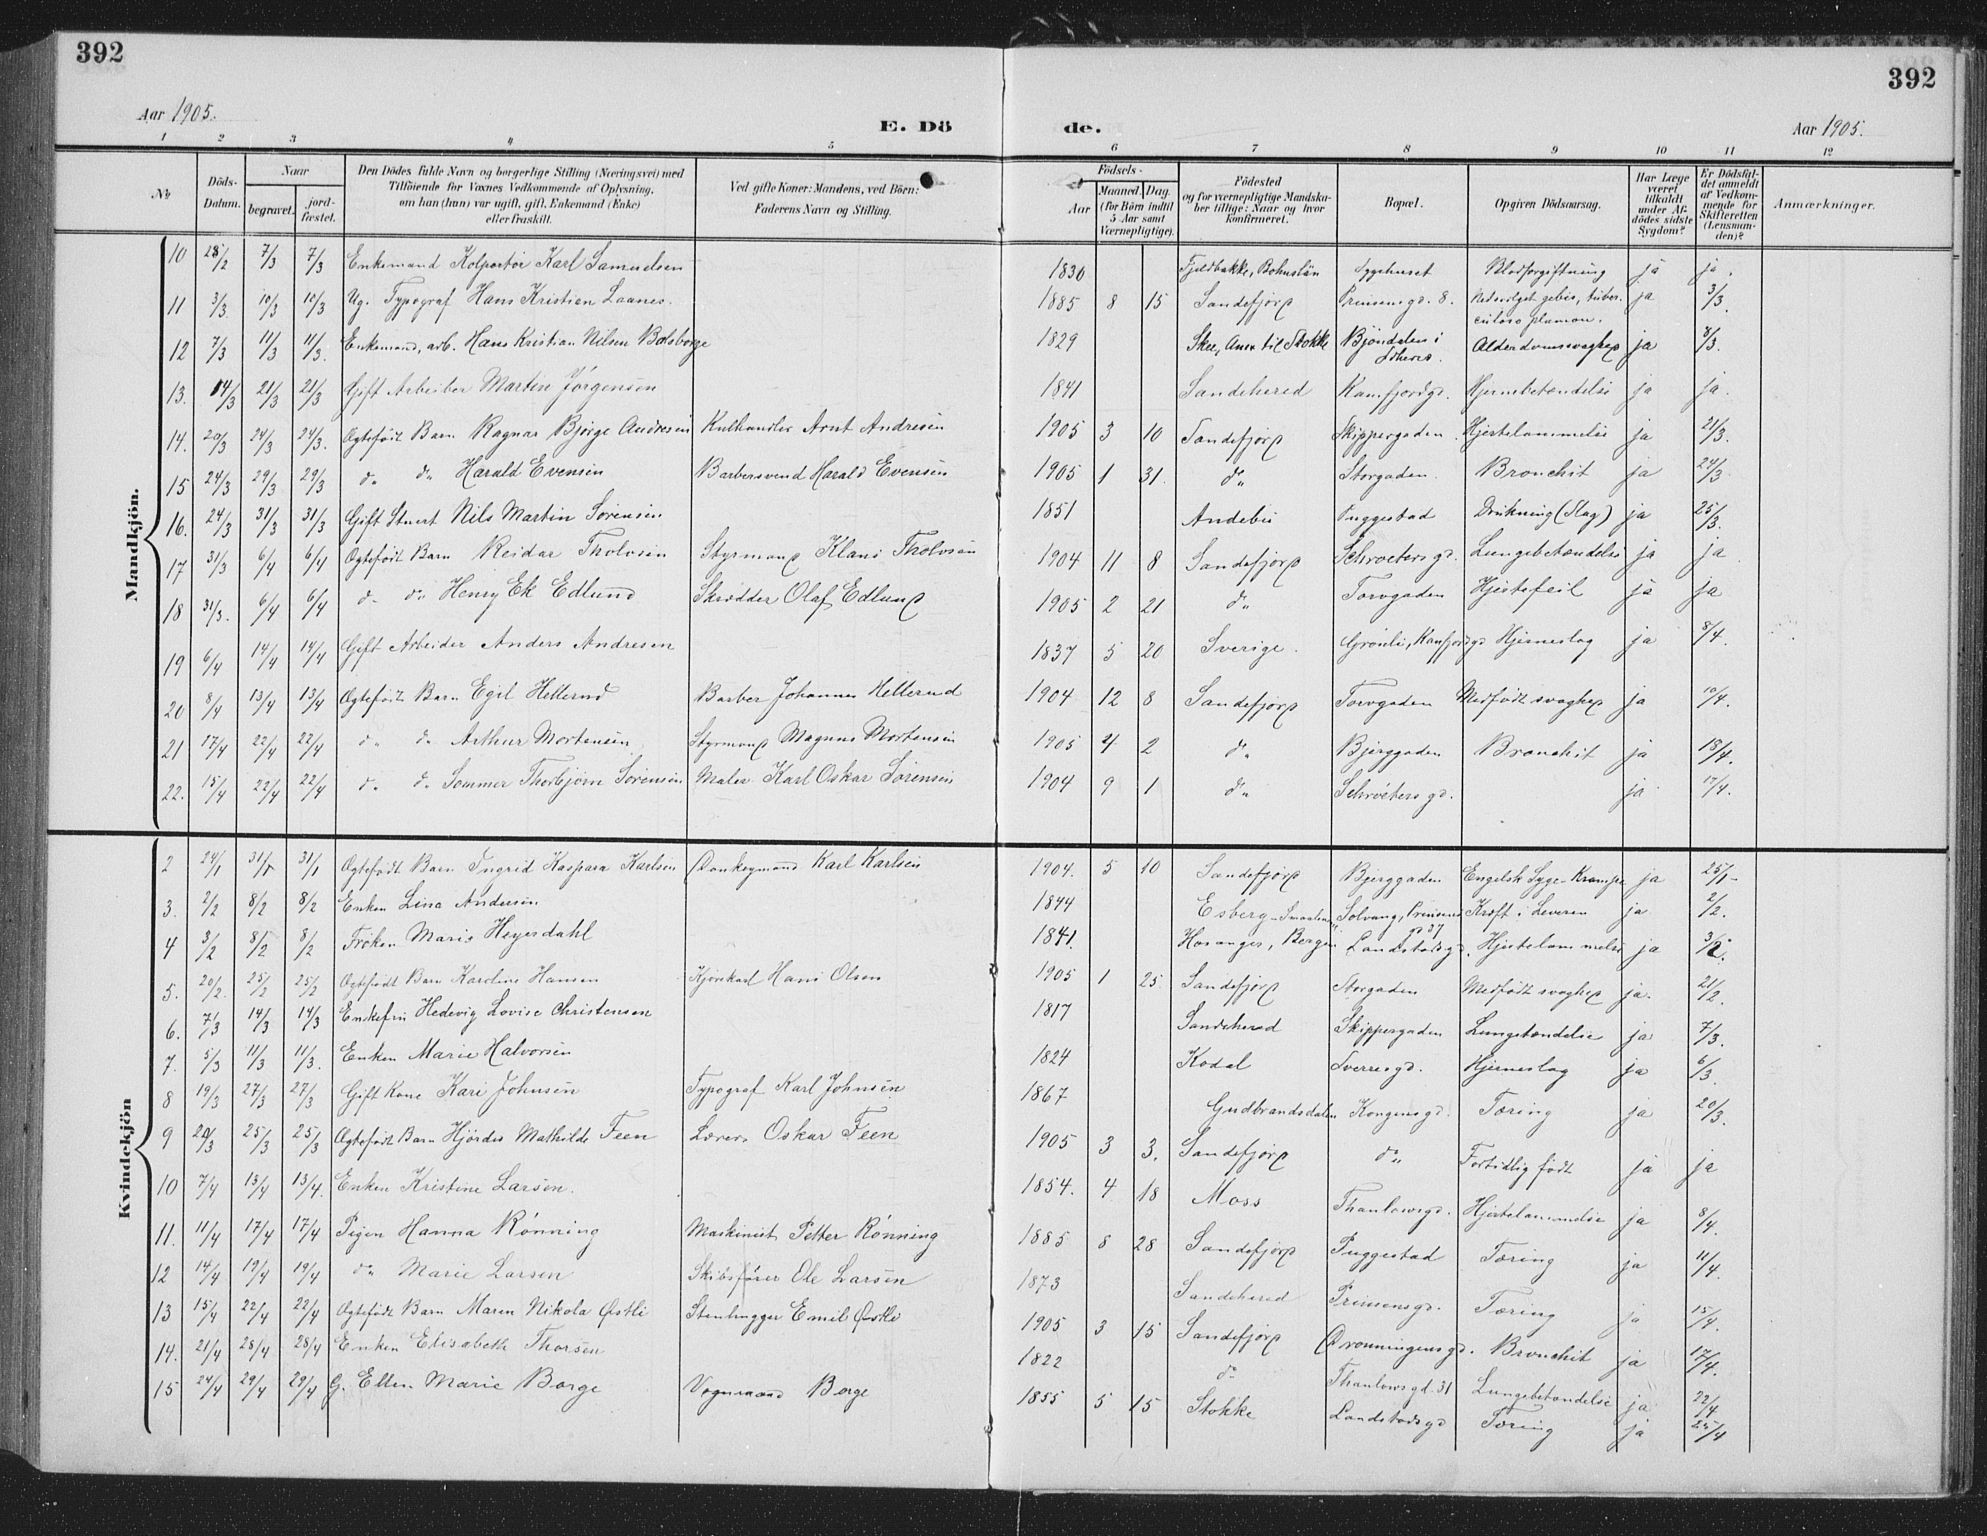 392
392
Aar 1905.
E. Dö
de.
Aar 1905.
1 2 3 4 5 6 7 8 9 10 11 12
No
Döds-Datum.
Naar
begravet.
jord-fæstet.
Den Dödes fulde Navn og borgerlige Stilling (Næringsvei) med
Tilföiende for Voxnes Vedkommende af Oplysning,
om han (hun) var ugift, gift, Enkemand (Enke)
eller fraskilt.
Ved gifte Koner: Mandens, ved Börn:
Faderens Navn og Stilling.
Födsels-
Aar
Maaned. Dag.
(for Börn indtil
5 Aar samt
Værnepligtige).
Födested
og for værnepligtige Mandska-
ber tillige: Naar og hvor
konfirmeret.
Bopæl.
Opgiven Dödsaarsag.
Har Læge
været
tilkaldt
under Af-
dödes sidste
Sygdom?
Er Dödsfal-
det anmeldt
af Vedkom-
mende for
Skifteretten
(Lensman-
den)?
Anmærkninger.
Mandkjön.
10 28/2 7/3 7/3 Enkemand Kolportör Karl Samuelsen 1830 Fjeldbakke, Bohuslän Sygehuset Blodforgiftning ja ja.
11 3/3 10/3 10/3 Ug. Typograf Hans Kristian Laanes. 1885 8 15 Sandefjord Prinsensgd. 8. ja 3/3.
12 7/3 11/3 11/3. Enkemand, arb. Hans Kristian Nilsen 1829 Skee, Anex til Stokke Bjöndalen i Alderdomssvaghed ja 8/3.
13. 14/3 21/3 21/3 Gift Arbeider Martin Jörgensen 1841 Sandeherred Kamfjordgd. Hjernebetændelse ja ja.
14. 20/3 24/3 24/3. Ægtefödt Barn Ragnar Bjørge Andresen Kulhandler Arnt Andresen 1905 3 10 Sandefjord Skippergaden Hjertelammelse ja 21/3.
15 24/3 29/3 29/3 do do Harald Evensen Barbersvend Harald Evensen 1905 1 31. do Storgaden. Bronchit ja 24/3.
16. 24/3 31/3 31/3 Gift Stuert Nils Martin Sörensen 1851 Andebu Puggestad Drukning (Slag) ja 25/3.
17 31/3 6/4 6/4 Ægtefödt Barn Reidar Tholvsen Styrmand Klaus Tholvsen 1904 11 8 Sandefjord Schroetersgd. Lungebetændelse ja ja
18 31/3. 6/4 6/4 do do Henry Ek Edlund Skrædder Olaf Edlund 1905 2 21 do Torvgaden Hjertefeil ja ja
19 6/4 14/4 14/4 Gift Arbeider Anders Andresen 1837 5 20 Sverige. Grönli, Kamfjordgd Hjerneslag ja 8/4.
20 8/4 13/4 13/4 Ægtefödt Barn Egil Hellerud Barber Johannes Hellerud 1904 12 8 Sandefjord Torvgaden Medfödt svaghed ja 10/4.
21 17/4 22/4 22/4 do do Arthur Mortensen Styrmand Magnus Mortensen 1905 2 do Bjerggaden Bronchit ja 18/4.
22. 15/4 22/4 22/4 do do Sommer Thorbjørn Sörensen Maler Karl Oskar Sörensen 1904 9 1 do Schröetersgd. ja 17/4.
Kvindekjön
2 24/1 31/1 31/1 Ægtefödt Barn Ingrid Kaspara Karlsen Donkeymand Karl Karlsen 1904. 5 10 Sandefjord Bjerggaden Engelsk Syge-Krampe ja 25/1
3. 2/2 8/2 8/2 Enken Lina Andersen 1844 Solvang, Prinsens Kræft i Leveren ja 2/2.
4 3/2 8/2 8/2 Fröken Maris Heyerdahl 1841. Hosanger, Bergen Landstadsgd. Hjertelammelse ja 3/2.
5. 20/2. 25/2 25/2 Ægtefödt Barn Karoline Hansen Kjörekarl Hans Olsen 1905 1 25 Sandefjord Storgaden Medfödt svaghed ja. 21/2.
6. 7/3 14/3 14/3 Enkefru Hedevig Lovise Christensen 1817 Sandeherred Skippergaden Lungetændelse ja 7/3.
7. 5/3 11/3 11/3. Enken Marie Halvorsen 1824 Kodal Sverresgd. Hjerneslag ja 6/3.
8 19/3 27/3 27/3 Gift Kone Kari Johnsen Typograf Karl Johnsen 1867 Gudbrandsdalen Kongensgd. Tæring ja 20/3.
9 20/3 25/3 25/3 Ægtefödt Barn Hjördis Mathilde Feen Lærer Oskar Feen 1905 3 3. Sandefjord do Fortidlig födt ja ja
10 7/4 13/4 13/4. Enken Kristine Larsen. 1854. 4 18 Moss Thaulowsgd. Hjertelammelse ja 8/4.
11. 11/4 17/4 17/4 Pigen Hanna Rönning Maskinist Petter Rönning 1885 8 28 Sandefjord Puggestad Tæring ja 11/4.
12 14/4 19/4 19/4 do Marie Larsen Skibsförer Ole Larsen 1873 Sandeherred Prinsensgd. Tæring ja 15/4.
13 15/4 22/4 22/4 Ægtefödt Barn Maren Nikola Østli Stenhugger Emil Østli 1905 3 15 Sandefjord Dronningensgd. Bronchit ja 17/4.
14. 21/4 28/4 28/4 Enken Elisabeth Thorsen 1822 do Thaulowsgd. 31 Lungebetændelse ja 22/4
15 24/4 29/4 29/4 G. Ellen Marie Borge Vognmand Borge 1855 5 15 Stokke Landstadsgd Tæring ja 25/4